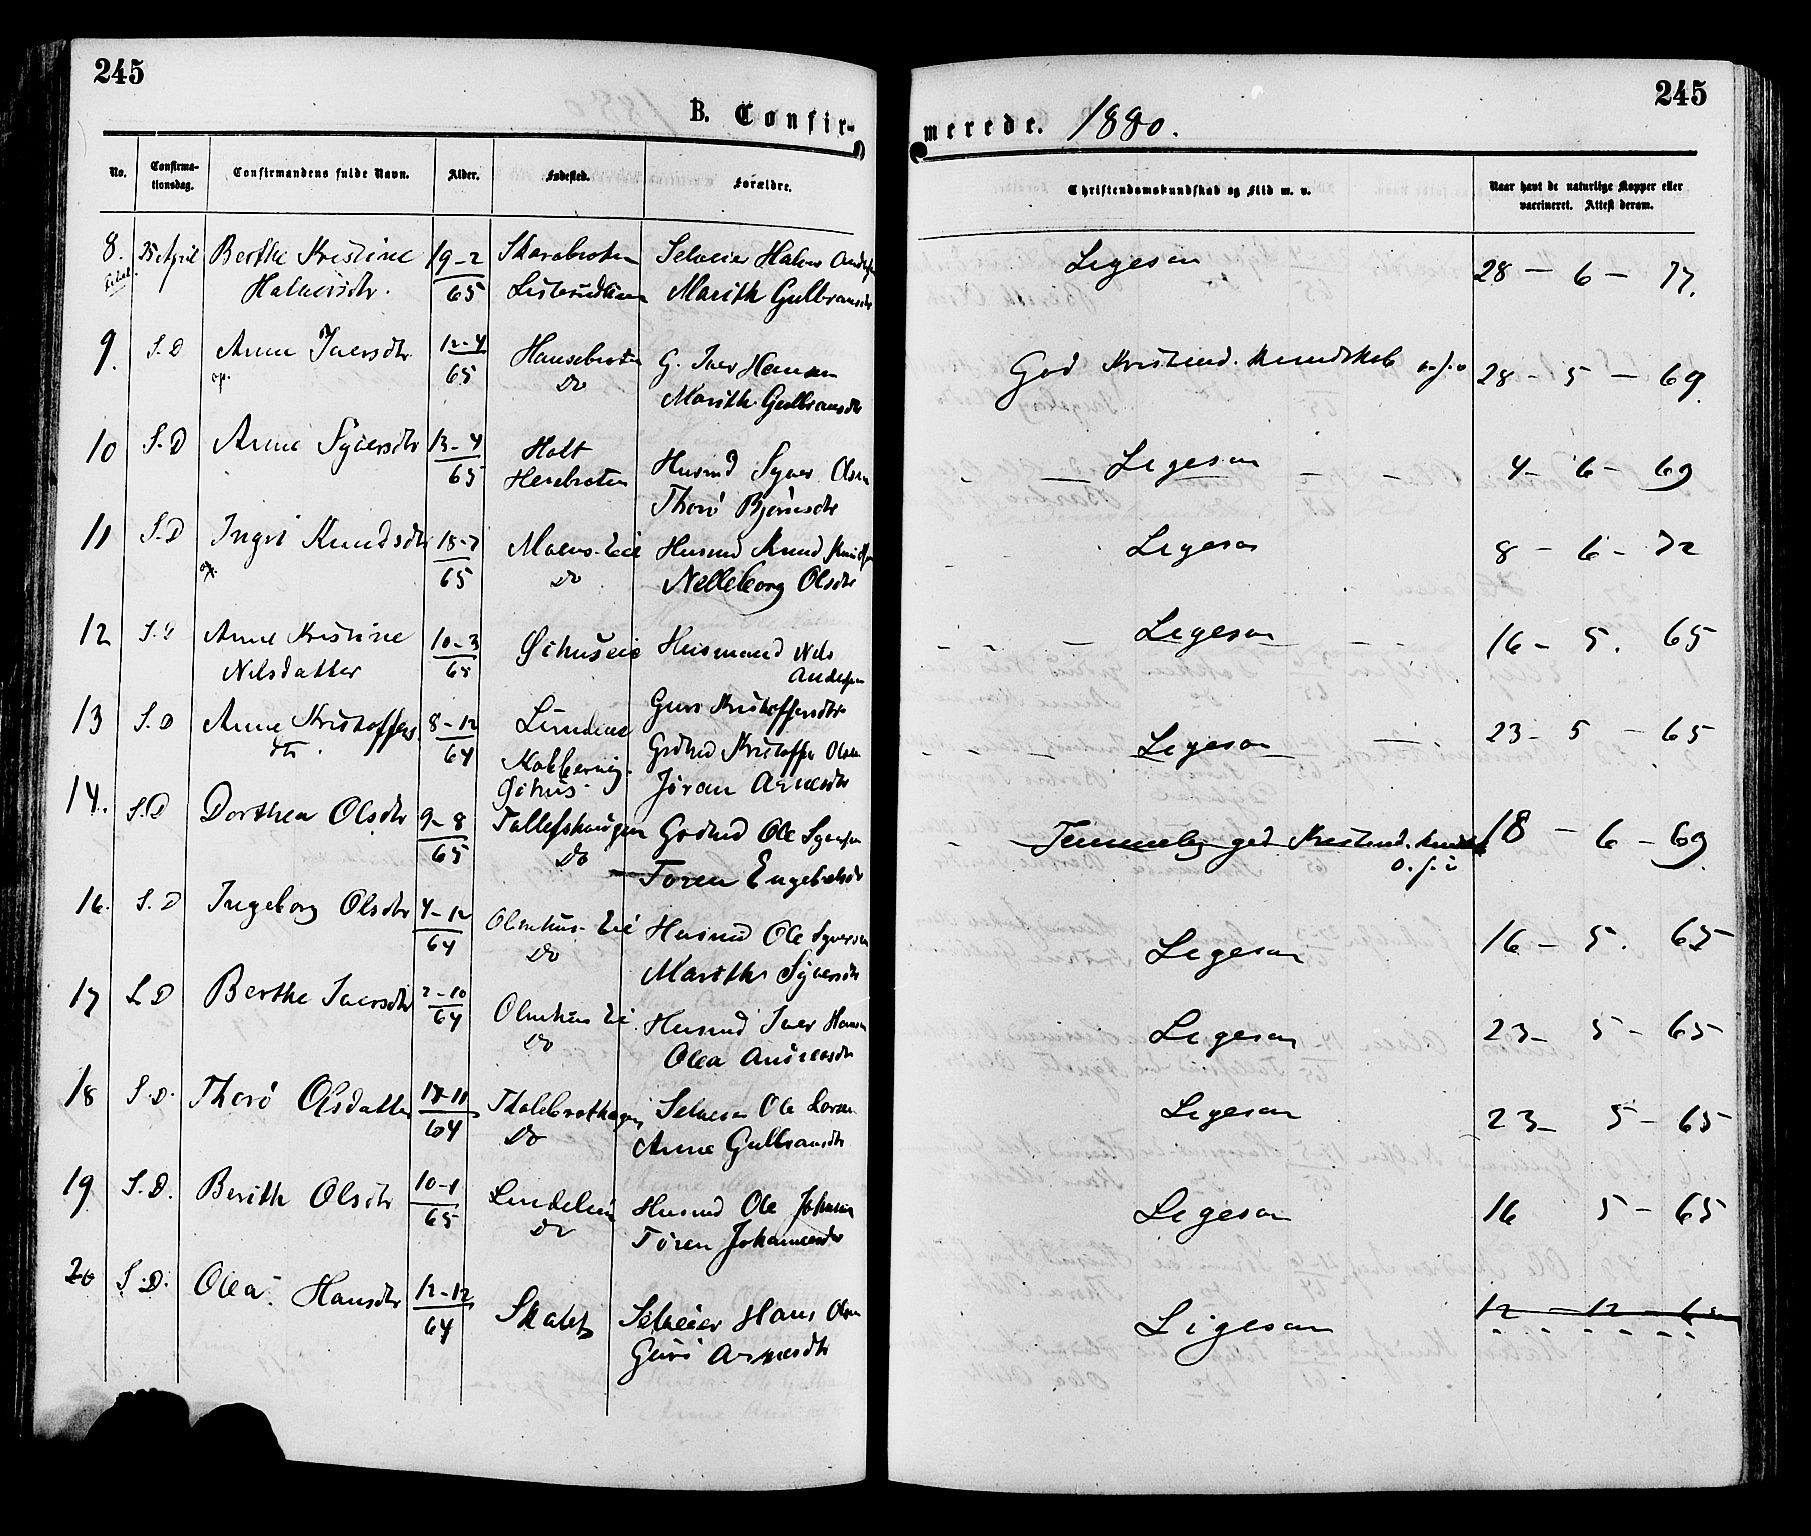 245
B. Confir-
merede. 1880.
245
No.
Confirma-
tionsdag.
Confirmandens fulde Navn.
Alder.
Fødested.
Forældre.
Christendomskundskab og Flid m. v.
Naar havt de naturlige Kopper eller
vaccineret. Attest derom.
8. 25 April Berthe Kristine 19-2 Selveier Halvor
Halvorsdtr. 65 Marith Gulbransdtr
Ligesaa 28 - 6 - 77.
9. S. D Anne Iversdtr 12-4 Hansebroten G. Iver Hansen
op. 65 Do Marith Gulbransdtr
God Kristend. kundskab o.s.v 28 - 5 - 69.
10 S. D Anne Syversdtr 13-4 Holt Husmd Syver Olsen
65 Thorø Bjørnsdtr
Ligesaa 4 - 6 - 69
11 S. D Ingri Knudsdtr 18-7 Husmd Knud
65 Do Nelleborg Olsdtr
Ligesaa 8 - 6 - 72
12 Anne Kristine 10-3 Husmand Nils
Nilsdatter 65 Andersen
Guri Kristoffersdtr
Ligesaa 16 - 5. 65
13 S. D Anne Kristoffers 8-12 Kristoffer Olsen
dtr. 64 Jøran Arnesdtr
Ligesaa 23 - 5 - 65
14. S. D Dorthea Olsdtr 9-8 Tollefshaugen Ole Syversen
65 Do Tøren Engebretsdtr
Temmelig god Kristend. kundsk
o.s.v 18 - 6 - 69.
16. S. D Ingeborg Olsdtr 4-12 Olmhus-Eie Husmd Ole Syversen
64 Do Marithe Syversdtr
Ligesaa 16 - 5. 65
17 S. D Berthe Iversdtr 2-10 Olmhus Ei Husmd Iver Hansen
64 Do Olea Andreasdtr
Ligesaa 23 - 5 - 65
18 S. D. Thorø Olsdatter 64 Selveier Ole
Do Anne Gulbransdtr
Ligesaa 23 - 5 - 65
19 S. D. Berith Olsdtr 10-1 Lindelien Husmd Ole Johnsen
65 Do Tøren Johannesdtr
Ligesaa 16 5 - 65
20 S. D. Olea Hansdtr 12-12 Selveier Hans Olsen
64 Guri Arnesdtr
Ligesaa 12 - 12 - 65